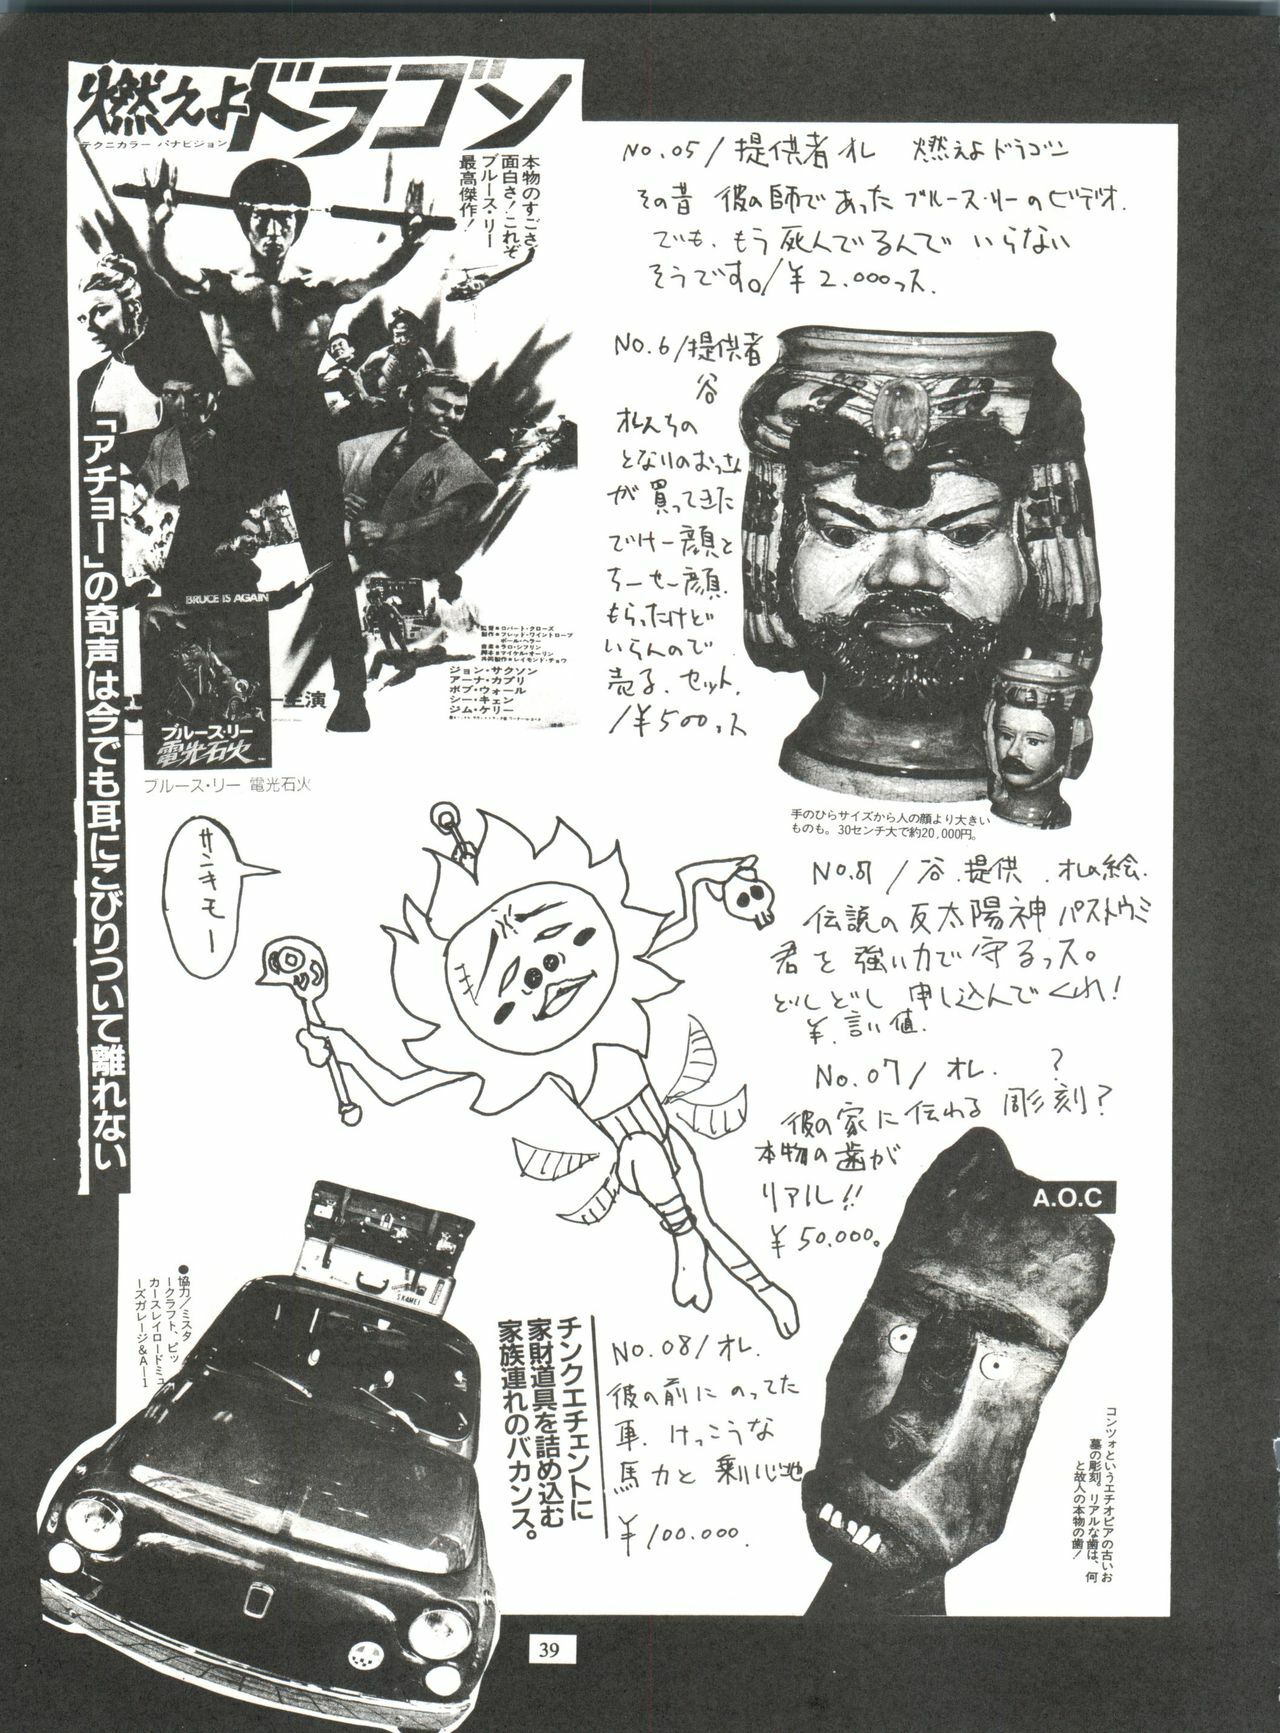 燃えよドラゴン
テクニカラー パナビジョン
本物のすごさ、
面白さ！これぞ
ブルース・リー
最高傑作！
「アチョー」の奇声は今でも耳にこびりついて離れない
BRUCE IS AGAIN
監督●ロバート・クローズ
製作●フレッド・ワイントローブ
ポール・ヘラー
音楽●ラロ・シフリン
脚本●マイケル・オーリン
共同製作●レイモンド・チョウ
ジョン・サクソン
アーナ・カプリ
ボブ・ウォール
シー・キェン
ジム・ケリー
ー主演
ブルース・リー
電光石火
ブルース・リー 電光石火
No.05/提供者オレ 燃えよドラゴン
その昔 彼の師であったブルース・リーのビデオ.
でも、もう死んでるんで いらない
そうです。/¥2.000っス.
No.6/提供者
谷
オレんちの
となりのおっさん
が買ってきた
でけー顔と
ちーせー顔.
もらったけど
いらんので
売る.セット.
/¥500っス
手のひらサイズから人の顔より大きい
ものも。30センチ大で約20,000円。
サンキモー
No.8/谷.提供.オレの絵.
伝説の反太陽神パストウミ
君を強い力で守るっス。
どしどし申し込んでくれ！
¥.言い値.
No.07/オレ. ?
彼の家に伝わる彫刻?
本物の歯が
リアル!!
¥50.000。
A.O.C
コンツォというエチオピアの古いお
墓の彫刻。リアルな歯は、何
と故人の本物の歯！
No.08/オレ.
彼の前にのってた
車.けっこうな
馬力と乗り心地
¥100.000.
チンクエチェントに
家財道具を詰め込む
家族連れのバカンス。
●協力/ミスタ
ークラフト、ビッ
カースレイロードミュ
ーズガレージ&A—1
39